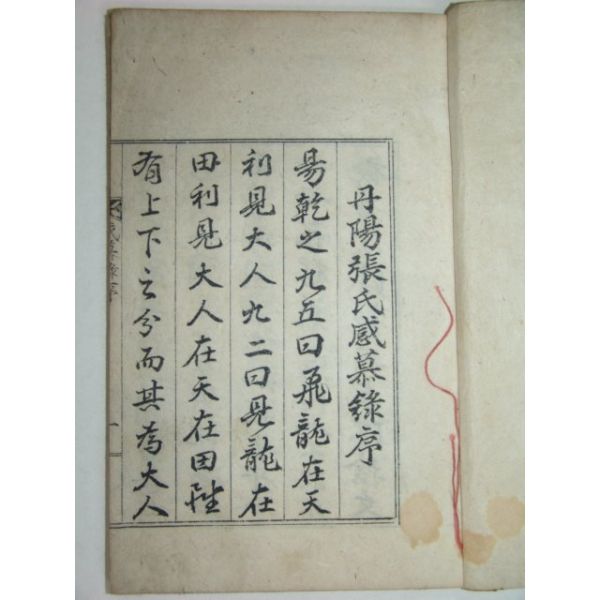 丹陽張氏感慕錄序
易乾之九五曰飛龍在天
利見大人九二曰見龍在
田利見大人在天在田雖
有上下之分而其為大人